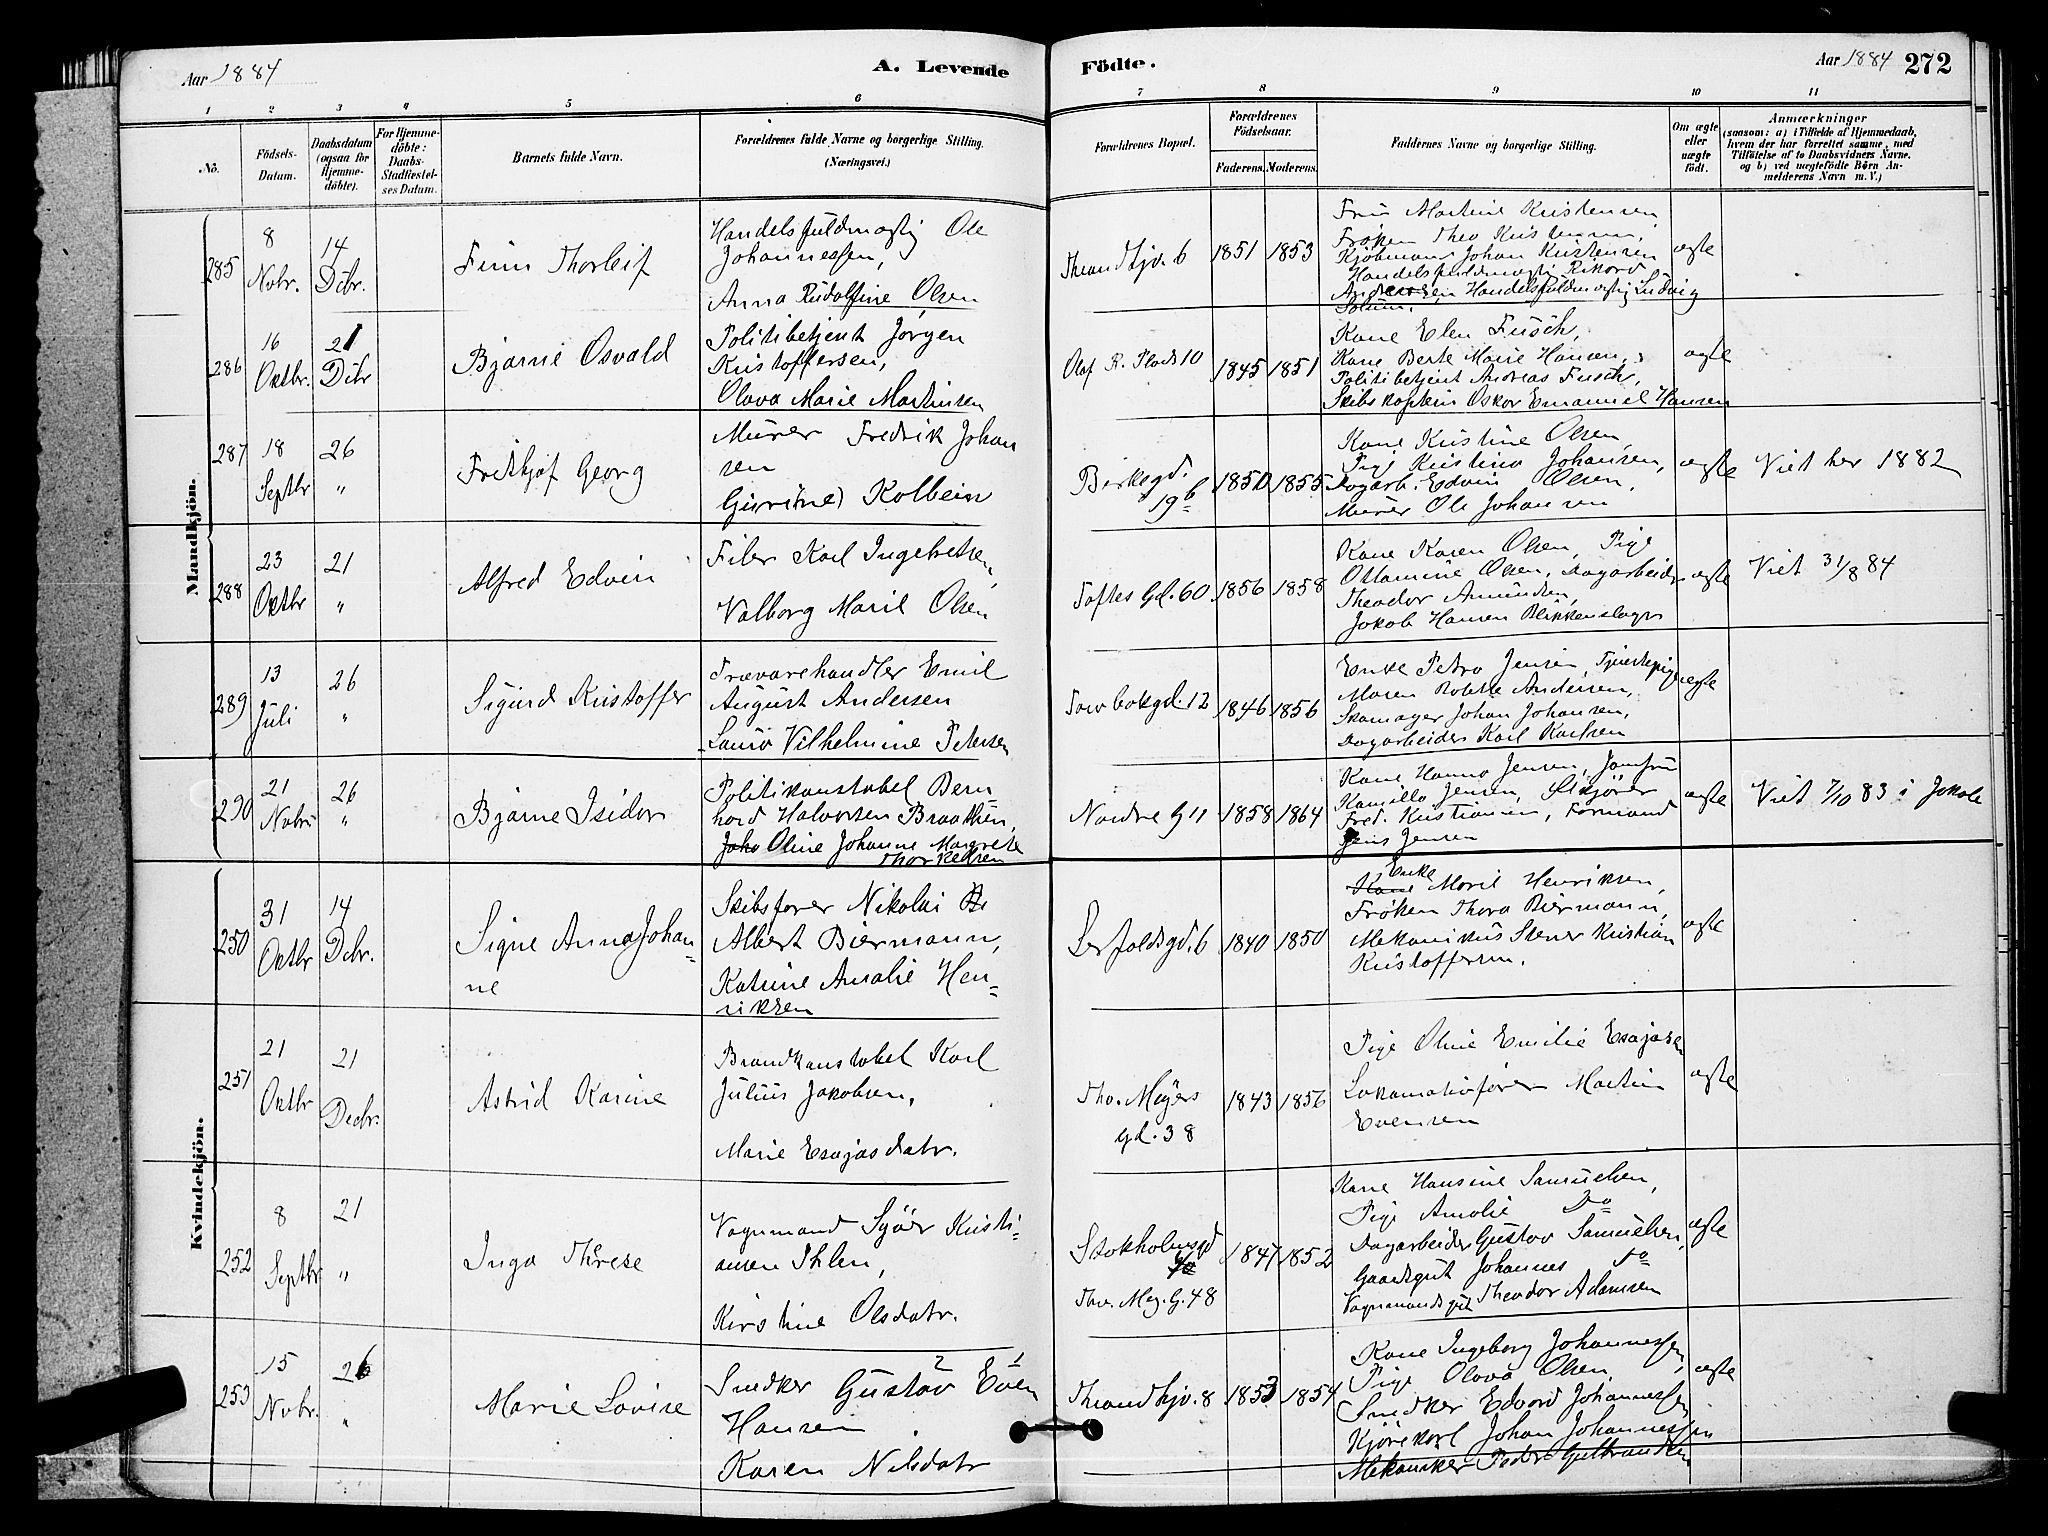 Aar 1884
A. Levende
Födte.
Aar 1884 272
1 2 3 4 5 6 7 8 9 10 11
No.
Födsels-Datum.
Daabsdatum (ogsaa for Hjemme-döbte).
For Hjemme-döbte: Daabs-Stadfæstel-ses Datum.
Barnets fulde Navn.
Forældrenes fulde Navne og borgerlige Stilling.
(Næringsvei.)
Forældrenes Bopæl.
Forældrenes Födselsaar.
Faderens. Moderens.
Faddernes Navne og borgerlige Stilling.
Om ægte eller uægte födt.
Anmærkninger
(saasom: a) i Tilfælde af Hjemmedaab, hvem der har forrettet samme, med Tilföielse af to Daabsvidners Navne. og b) ved uægtefödte Börn An-melderens Navn m. V.)
Mandkjön.
285
8 Nobr.
14 Dcbr.
Finn Thorleif
Handelsfuldmægtig Ole
Johannessen,
Anna Rudolfine Olsen
Throndhjv. 6
1851 1853
Fru Martine Kristensen
Frøken Thea Kristensen,
Kjøbmand Johan Kristensen
Handelsfuldmægtig Rikard
Andersen, Handelsfuldmægtig Ludvig
Solum.
ægte
286
16 Oktbr.
21 Dcbr
Bjarne Osvald
Politibetjent Jørgen
Kristoffersen,
Olava Marie Martinsen
Olaf R. Plads 10
1845 1851
Kone Elen Fusch,
Kone Berte Marie Hansen,
Politibetjent Andreas Fusch,
Skibskaptein Oskar Emanuel Hansen
ægte
287
18 Septbr
26 "
Frithjof Georg
Murer Fredrik Johan
sen
Guri(ne) Kolbein
Birkegd. 19 b
1850 1855
Kone Kristine Olsen,
Pige Kristina Johansen,
Dagarb. Edvin Olsen,
Murer Ole Johansen
ægte
Viet her 1882
288
23 Oktbr
21 "
Alfred Edvin
Filer Karl Ingebretsen,
Valborg Marie Olsen
Toftes Gd. 60
1856 1858
Kone Karen Olsen, Pige
Ottomine Olsen, Dagarbeider
Theodor Amundsen,
Jakob Hansen Blikkenslager
ægte
Viet 31/8 84
289
13 Juli
26 "
Sigurd Kristoffer
Trævarehandler Emil
August Andersen
Laura Vilhelmine Petersen
1846 1856
Enke Petra Jensen, Tjenestepige
Maren Andersen,
Skomager Johan Johansen,
Dagarbeider Karl Karlsen
ægte
290
21 Nobr
26 "
Bjarne Isidor
Politikonstabel Bern
hard Halvorsen Braathen,
Joha Oline Johanne Margrete
Thorkelsen
Nordre G 11
1858 1864
Kone Hanna Jensen, Jomfru
Kamilla Jensen,
Fred. Kristiansen, Formand
Jens Jensen
ægte
Viet 7/10 83 i Jakob
Kvindekjön.
250
31 Oktbr
14 Dcbr.
Signe Anna Johan
ne
Skibsfører Nikolai
Albert Biermann,
Katrine Amalie Hen
riksen
1840 1850
Enke
Kone Marie Henriksen,
Frøken Thora Biermann,
Mekanikus Stener Kristian
Kristoffersen.
ægte
251
21 Oktbr
21 Decbr.
Astrid Karine
Brandkonstabel Karl
Julius Jakobsen,
Marie Esajasdatr.
Tho. Meyers
gd. 38
1843 1856
Pige Oline Emilie Esajasen
Lokomotivfører Martin
Evensen
ægte
252
8 Septbr
21 "
Inga Therese
Vognmand Syver Kristi
ansen Ihlen,
Kirstine Olsdatr.
Stokholmsgd
Thv. Mey. G. 48
1847 1852
Kone Hansine Samuelsen,
Pige Amalie Do
Dagarbeider Gustav Samuelsen,
Gaardsgut Johannes Do
Vognmandsgut Theodor Adamsen
ægte
253
15 Nobr.
26 "
Marie Lovise
Snedker Gustav 2 Even 1
Hansen
Karen Nilsdatr
Throndhjv. 8
1853 1854
Kone Ingeborg Johannessen,
Pige Olava Olsen,
Snedker Edvard Johannessen
Kjørekarl Johan Johannessen
Mekaniker Peder Gulbrandsen
ægte